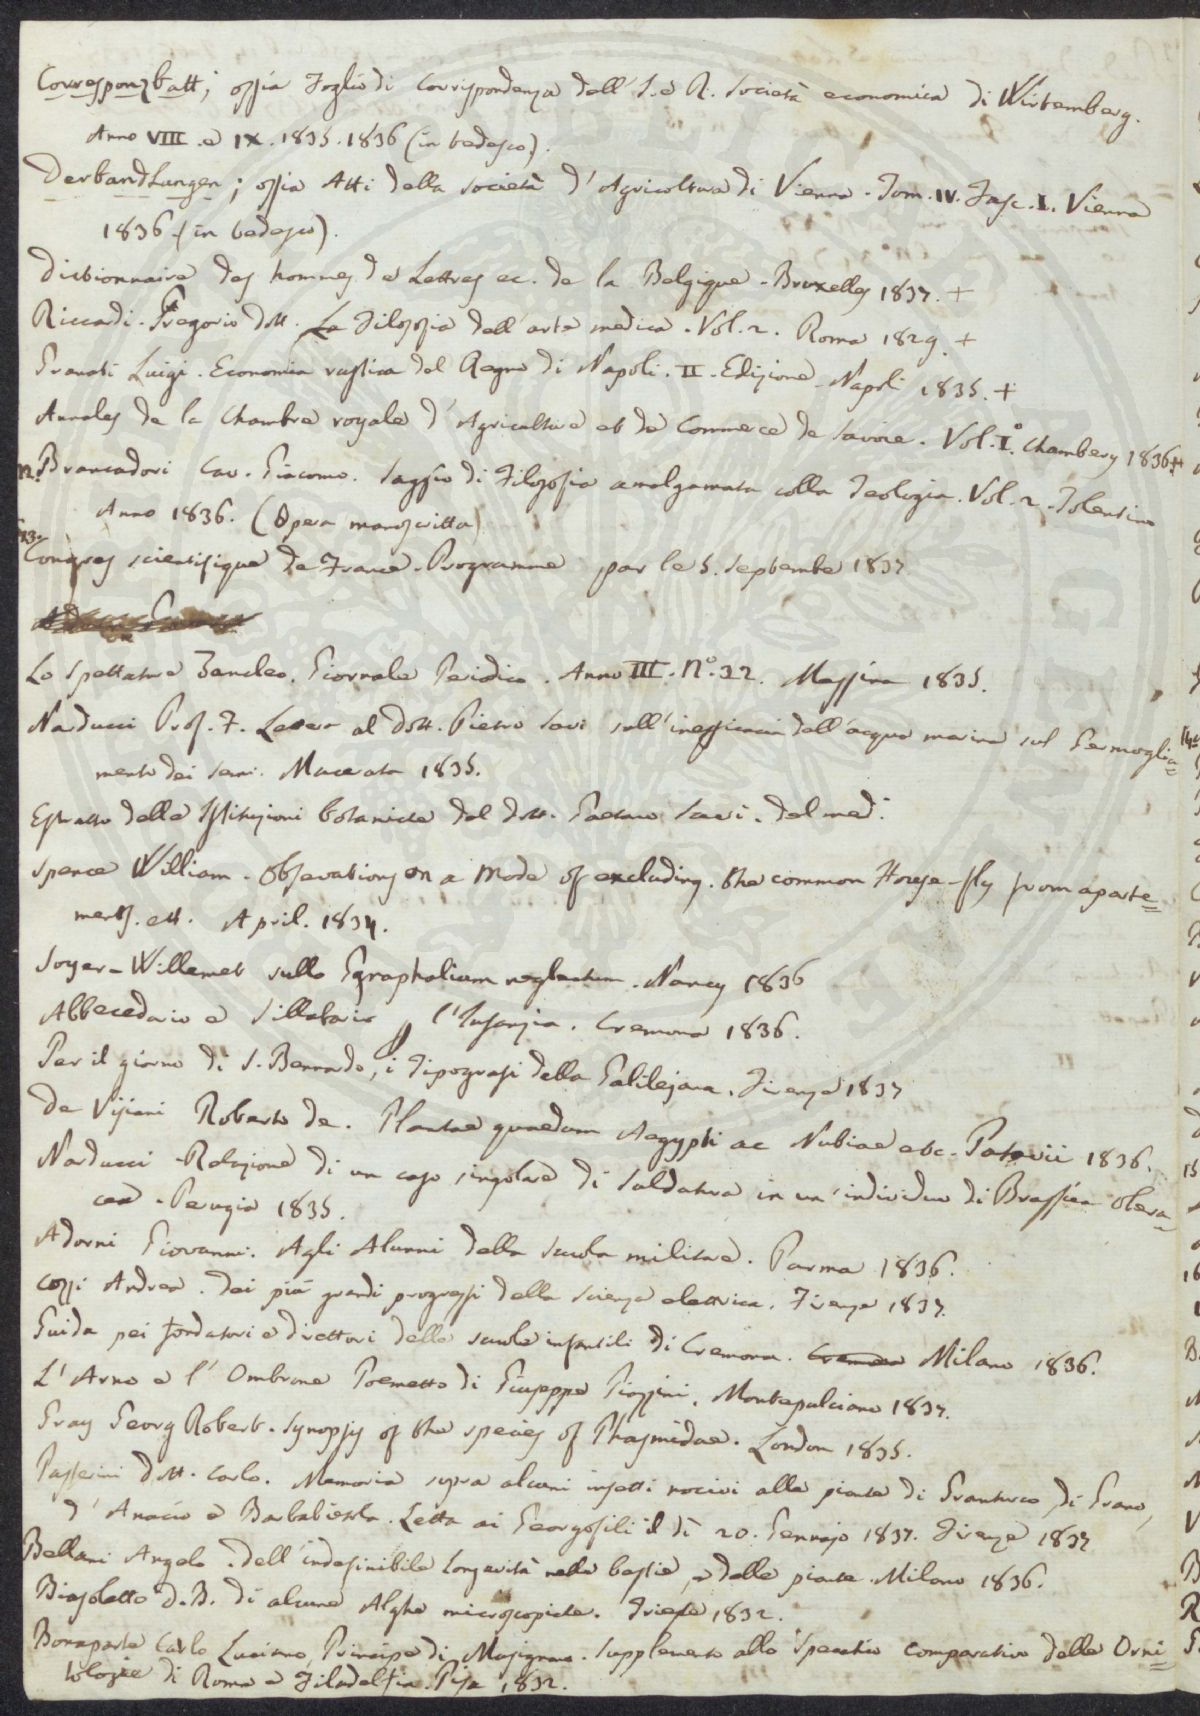 Corresponzbatt; ossia Foglio di Corrispondenza dell' I. e R. Società economica di Wirtemberg.
Anno VIII. e IX. 1835. 1836 (in tedesco).
Derbandlungen; ossia Atti della società d'Agricoltura di Vienna. Tom. IV. Fasc. I. Vienna
1836. (in tedesco).
Dictionnaire des hommes de Lettres ec. de la Belgique. Bruxelles 1837. +
Riccardi. Gregorio dott. La Filosofia dell'arte medica. Vol. 2. Roma 1829. +
Granati Luigi. Economia rustica del Regno di Napoli. II. Edizione. Napoli 1835. +
Annales de la Chambre royale d'Agriculture et de Commerce de Savoie. Vol. I.° Chambery 1836. +
Brancadori Cav. Giacomo. Saggio di Filosofia amalgamata colla Teologia. Vol. 2. Tolentino
Anno 1836. (Opera manoscritta)
Congres scientifique de France. Programme par le 5. Septembre 1837
Lo Spettatore Zancleo. Giornale Periodico. Anno III. N.° 32. Messina 1835.
Narducci Prof. F. Lettera al dott. Pietro Savi sull'inefficacia dell'acqua marina sul Germoglia=
mento dei semi. Macerata 1835.
Estratto delle Istituzioni botaniche del dott. Gaetano Savi. del med.
Spence William. Observations on a Mode of excluding. the common House-fly from aparte=
ments. ett. April. 1834.
Soyer-Willemet sullo Gnaphalium neglectum. Nancy 1836
Abbecedario e Sillabario p l'Infanzia. Cremona 1836.
Per il giorno di S. Bernardo, i Tipografi della Galilejana. Firenze 1837
De Visiani Roberto de. Plantae quaedam Aegypti ac Nubiae etc. Patavii 1836.
Narducci. Relazione di un caso singolare di Saldatura in un'individuo di Brassica olera=
cea. Perugia 1835.
Adorni Giovanni. Agli Alunni della Scuola militare. Parma 1836.
Cozzi Andrea. Dei più grandi progressi della scienza elettrica. Firenze 1837.
Guida pei fondatori e direttori delle scuole infantili di Cremona. Cremona Milano 1836.
L'Arno e l'Ombrone Poemetto di Giuseppe Giozzini. Montepulciano 1837.
Gray Georg Robert. Synopsis of the species of Phasmidae. London 1835.
Passerini dott. Carlo. Memoria sopra alcuni insetti nocivi alle piante di Granturco, di Grano,
d'Anacio e Barbabietola. Letta ai Georgofili il dì 20. Gennajo 1837. Firenze 1837
Bellani Angelo. Dell'indefinibile longevità nelle bestie, e delle piante. Milano 1836.
Biasoletto D. B. di alcune Alghe microscopiche. Trieste 1832.
Bonaparte Carlo Luciano, Principe di Musignano. Supplemento allo Specchio comparativo delle Orni=
tologie di Roma e Filadelfia. Pisa 1832.